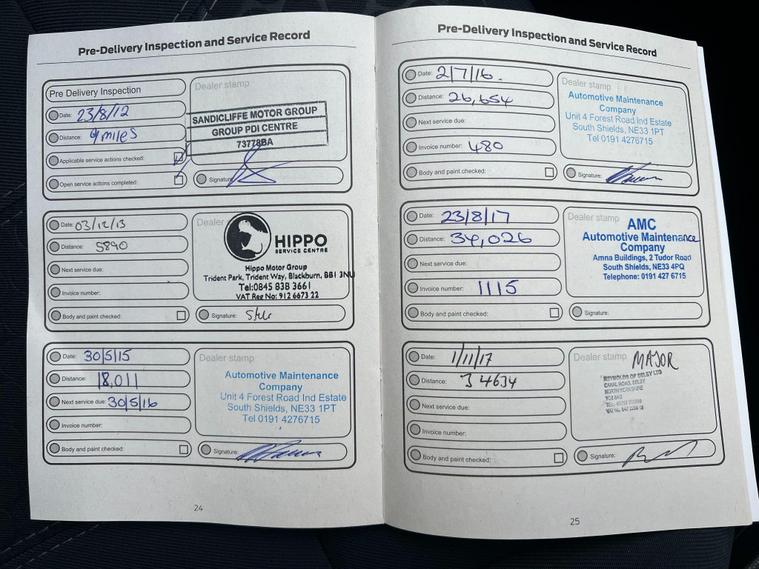 Pre-Delivery Inspection and Service Record
Pre Delivery Inspection
Date: 23/8/12
Distance: 9 miles
Applicable service actions checked:
Open service actions completed:
Dealer stamp
SANDICLIFFE MOTOR GROUP
GROUP PDI CENTRE
73778BA
Signature:
Date: 03/12/13
Distance: 5890
Next service due:
Invoice number:
Body and paint checked:
Dealer
HIPPO
SERVICE CENTRE
Hippo Motor Group
Trident Park, Trident Way, Blackburn, BB1 3NU
Tel:0845 838 3661
VAT Reg No: 912 6673 22
Signature:
Date: 30/5/15
Distance: 18,011
Next service due: 30/5/16
Invoice number:
Body and paint checked:
Dealer stamp
Automotive Maintenance
Company
Unit 4 Forest Road Ind Estate
South Shields, NE33 1PT
Tel 0191 4276715
Signature:
24
Pre-Delivery Inspection and Service Record
Date: 2/7/16.
Distance: 26,654
Next service due:
Invoice number: 480
Body and paint checked:
Dealer stamp
Automotive Maintenance
Company
Unit 4 Forest Road Ind Estate
South Shields, NE33 1PT
Tel 0191 4276715
Signature:
Date: 23/8/17
Distance: 34,026
Next service due:
Invoice number: 1115
Body and paint checked:
Dealer stamp
AMC
Automotive Maintenance
Company
Amna Buildings, 2 Tudor Road
South Shields, NE33 4PQ
Telephone: 0191 427 6715
Signature:
Date: 1/11/17
Distance: 34634
Next service due:
Invoice number:
Body and paint checked:
Dealer stamp MAJOR
REYNOLDS OF SELBY LTD
CANAL ROAD, SELBY
NORTH YORKSHIRE
Signature:
25